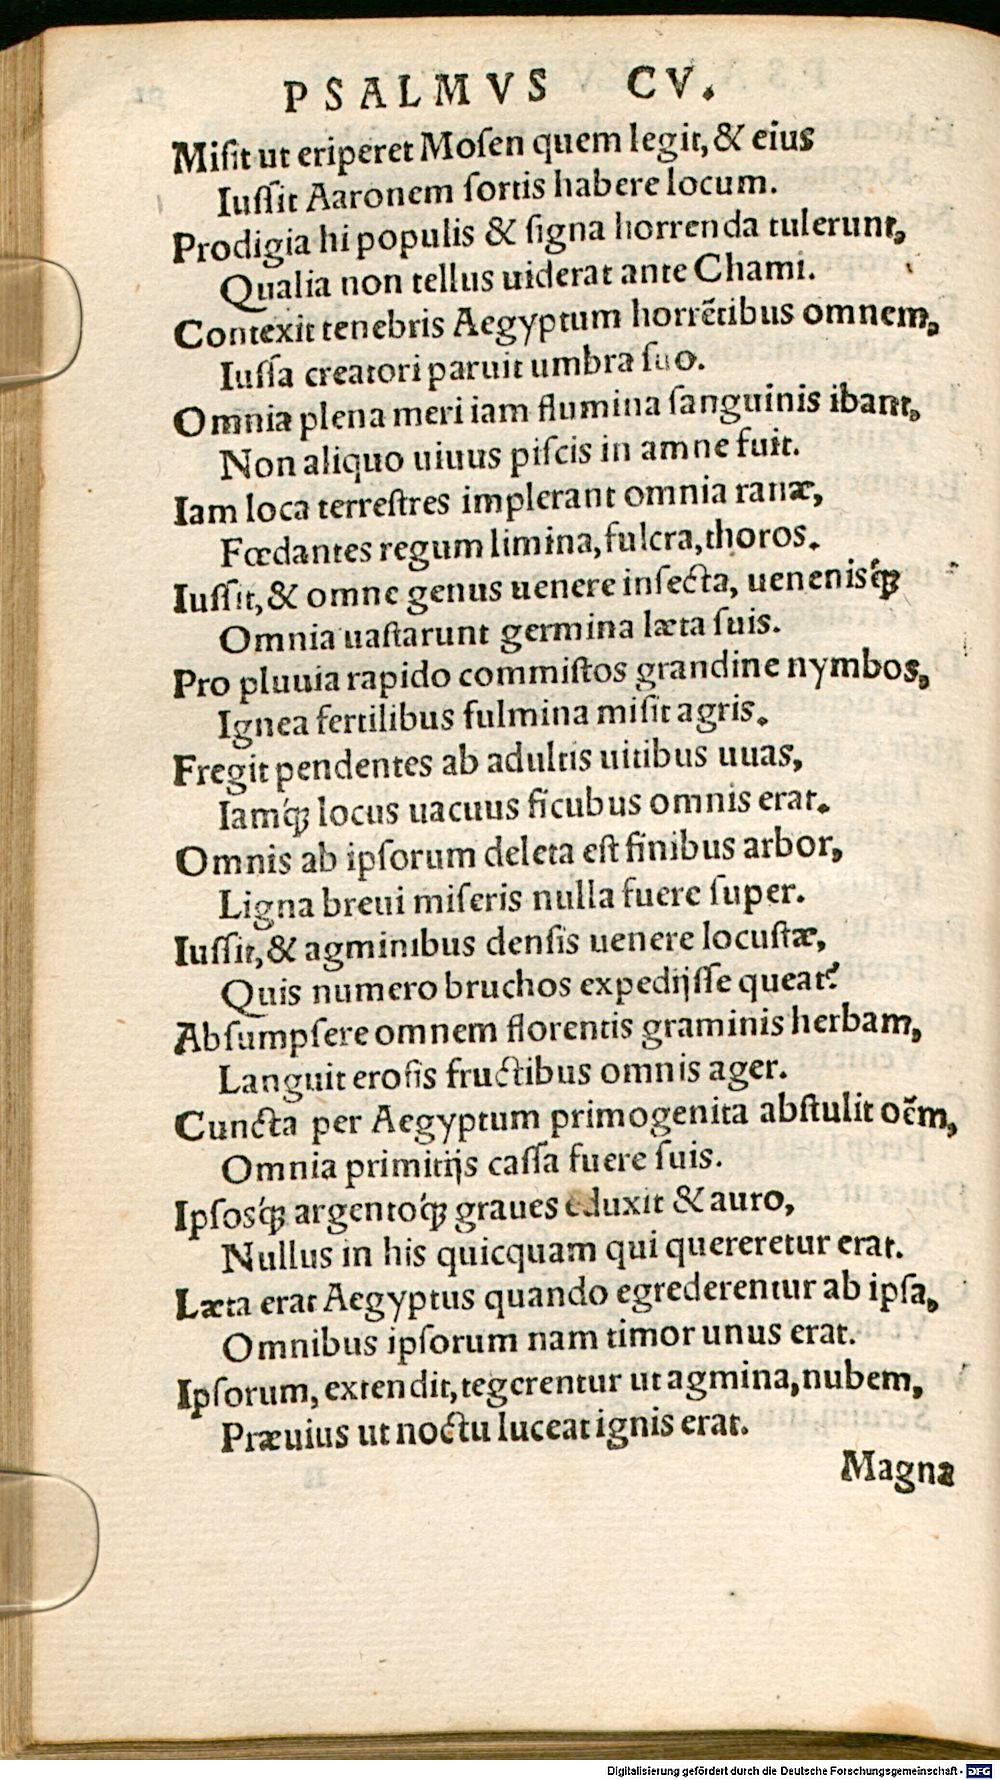 PSALMVS CV.
Misit ut eriperet Mosen quem legit, & eius
Iussit Aaronem sortis habere locum.
Prodigia hi populis & signa horrenda tulerunt,
Qualia non tellus uiderat ante Chami.
Contexit tenebris Aegyptum horrẽtibus omnem,
Iussa creatori paruit umbra suo.
Omnia plena meri iam flumina sanguinis ibant,
Non aliquo uiuus piscis in amne fuit.
Iam loca terrestres implerant omnia ranæ,
Fœdantes regum limina, fulcra, thoros.
Iussit, & omne genus uenere insecta, uenenisq́;
Omnia uastarunt germina læta suis.
Pro pluuia rapido commistos grandine nymbos,
Ignea fertilibus fulmina misit agris.
Fregit pendentes ab adultis uitibus uuas,
Iamq́; locus uacuus ficubus omnis erat.
Omnis ab ipsorum deleta est finibus arbor,
Ligna breui miseris nulla fuere super.
Iussit, & agminibus densis uenere locustæ,
Quis numero bruchos expedijsse queat?
Absumpsere omnem florentis graminis herbam,
Languit erosis fructibus omnis ager.
Cuncta per Aegyptum primogenita abstulit oẽm,
Omnia primitijs cassa fuere suis.
Ipsosq́; argentoq́; graues eduxit & auro,
Nullus in his quicquam qui quereretur erat.
Læta erat Aegyptus quando egrederentur ab ipsa,
Omnibus ipsorum nam timor unus erat.
Ipsorum, extendit, tegerentur ut agmina, nubem,
Præuius ut noctu luceat ignis erat.
Magna
Digitalisierung gefördert durch die Deutsche Forschungsgemeinschaft - DFG